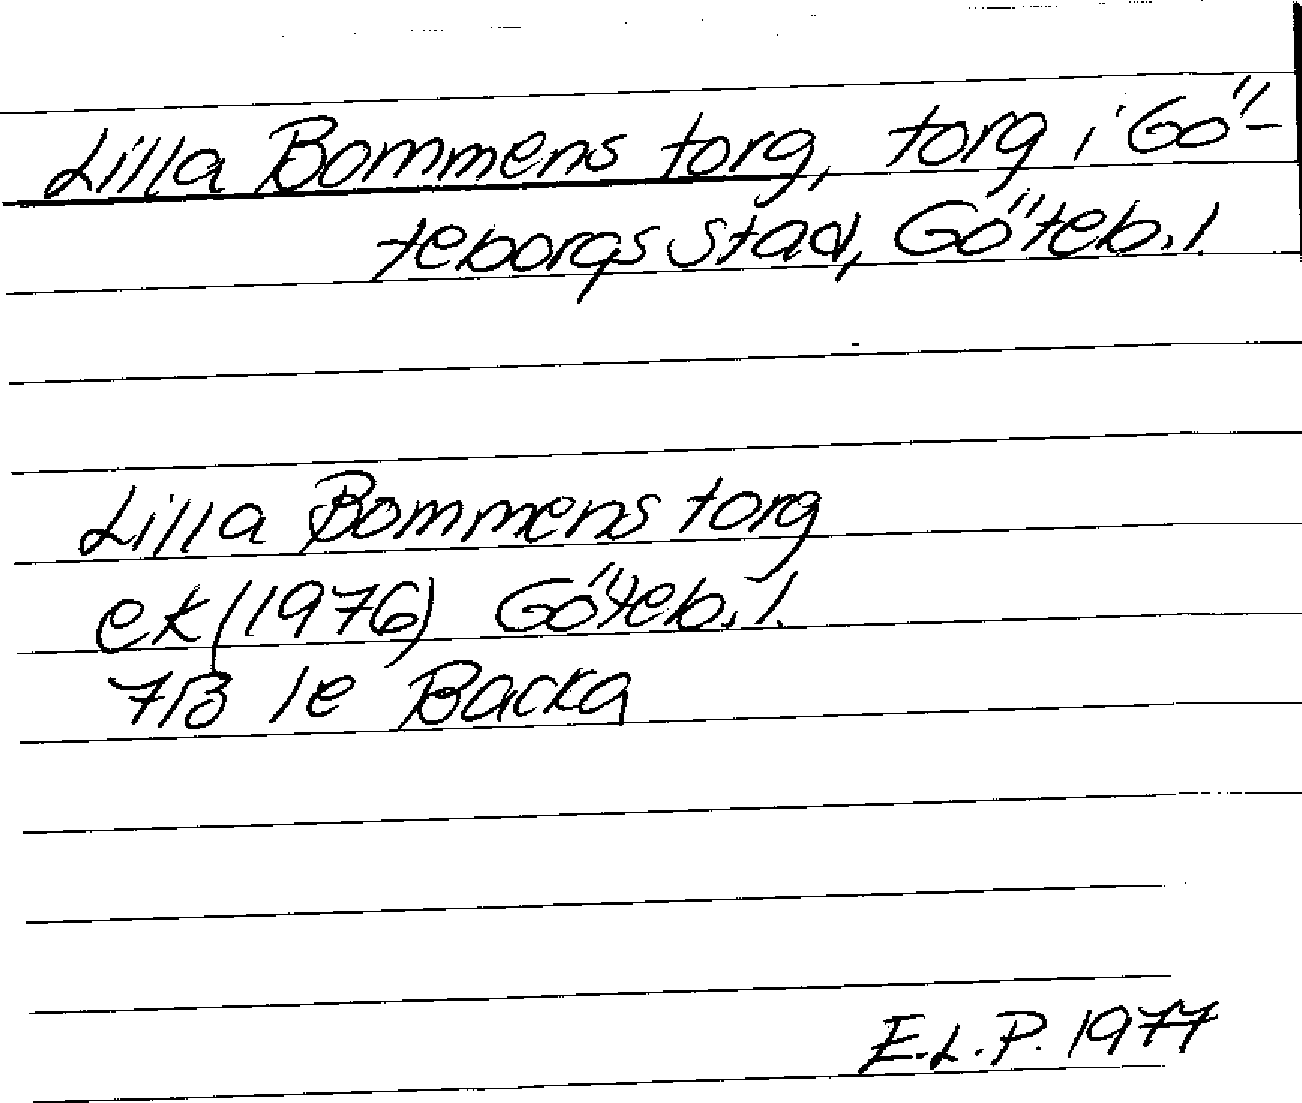 Lilla Bommens torg, torg i Gö-
teborgs stad, Göteb. l.
Lilla Bommens torg
ek (1976) Göteb. l.
7B 1e Backa
E.L.P. 1977